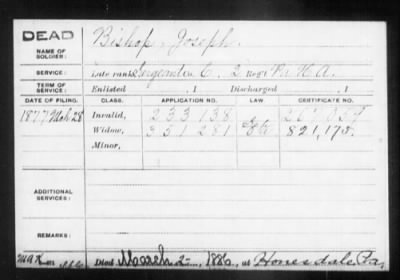 DEAD
NAME OF SOLDIER: Bishop, Joseph.
SERVICE: Late rank Sergeant Co. C, 2 Reg't Pa. H. A.
TERM OF SERVICE: Enlisted , 1 Discharged , 1
DATE OF FILING. CLASS. APPLICATION NO. LAW CERTIFICATE NO.
1877 Mch 28 Invalid, 233 138
Widow, 351 281 821,175.
Minor,
ADDITIONAL SERVICES:
REMARKS:
Died March 2, 1886, at Honesdale Pa.